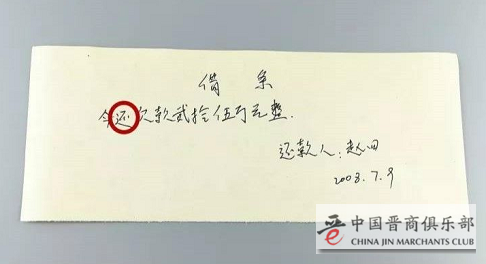 借条
今还欠款贰拾伍万元整.
还款人:赵四
2008.7.9
晋 中国晋商俱乐部
CHINA JIN MERCHANTS CLUB